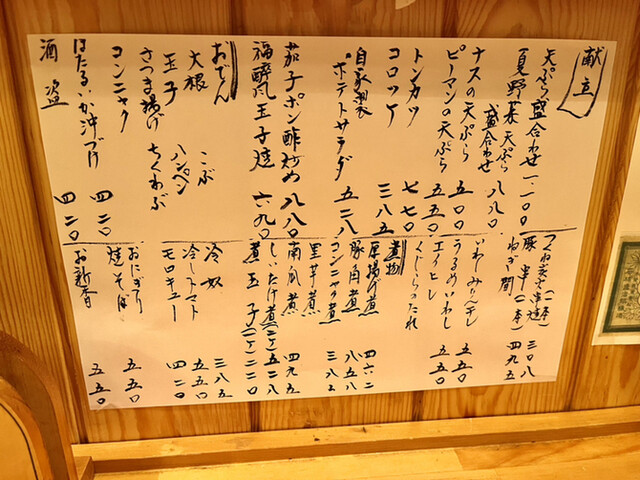 献立
天ぷら盛合わせ 一、一〇〇
夏野菜天ぷら盛合わせ 八八〇
ナスの天ぷら 五〇〇
ピーマンの天ぷら 五五〇
トンカツ 七七〇
コロッケ 三八五
自家製ポテトサラダ 五二八
茄子ポン酢炒め 八八〇
玉子焼 六九〇
おでん
大根 こぶ
玉子 ハンペン
さつま揚げ ちくわぶ
コンニャク
ほたるいか沖づけ 四二〇
酒盗 四二〇
つくね
豚串(一本) 三〇八
ねぎ間(一本) 四九五
いわしみりん
うるめいわし 五五〇
エイヒレ 五五〇
くじらのたれ
煮物
厚揚げ煮 四六二
豚角煮 八五八
コンニャク煮
里芋煮
南瓜煮 四九五
しいたけ煮 五二八
煮玉子(一ケ) 二二〇
冷奴 三八五
冷しトマト 五五〇
モロキュー 四二〇
おにぎり
焼そば 五五〇
お新香 五五〇